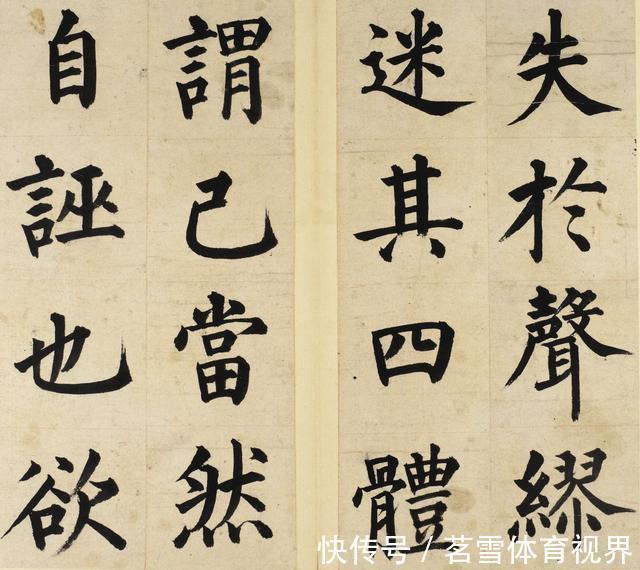 失於聲繆
迷其四體
謂己當然
自誣也欲
快传号 / 茗雪体育视界